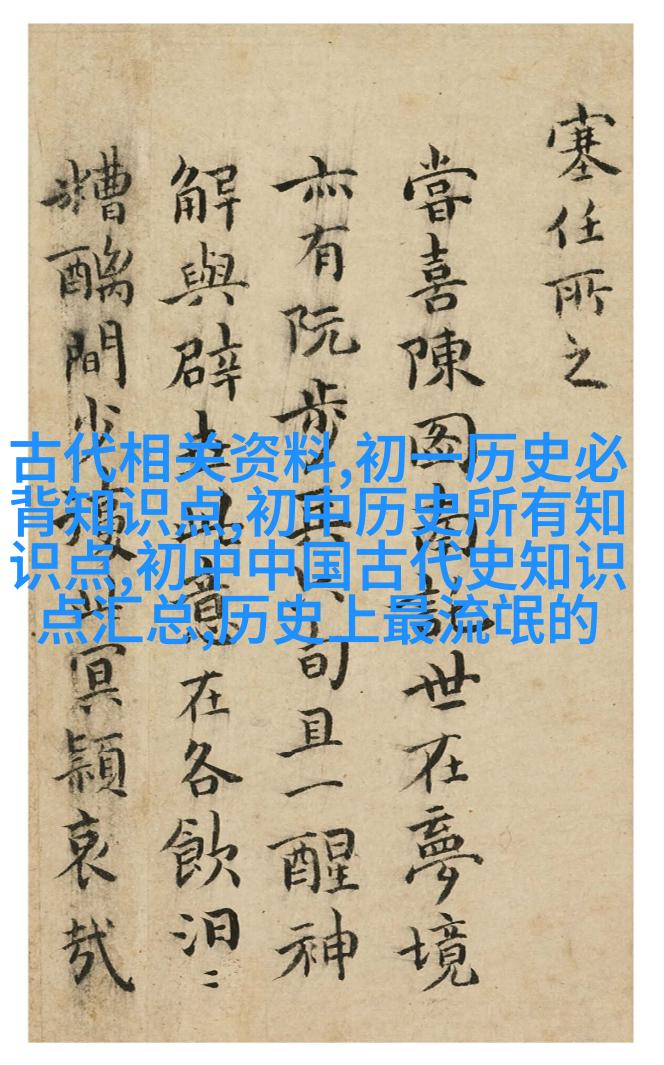 塞任所之
嘗喜陳图南世在夢境
亦有阮步兵旬且一醒神
解與辟此意在各飲汨〻
糟醨間冥穎哀哉
古代相关资料,初一历史必
背知识点,初中历史所有知
识点,初中中国古代史知识
点汇总,历史上最流氓的